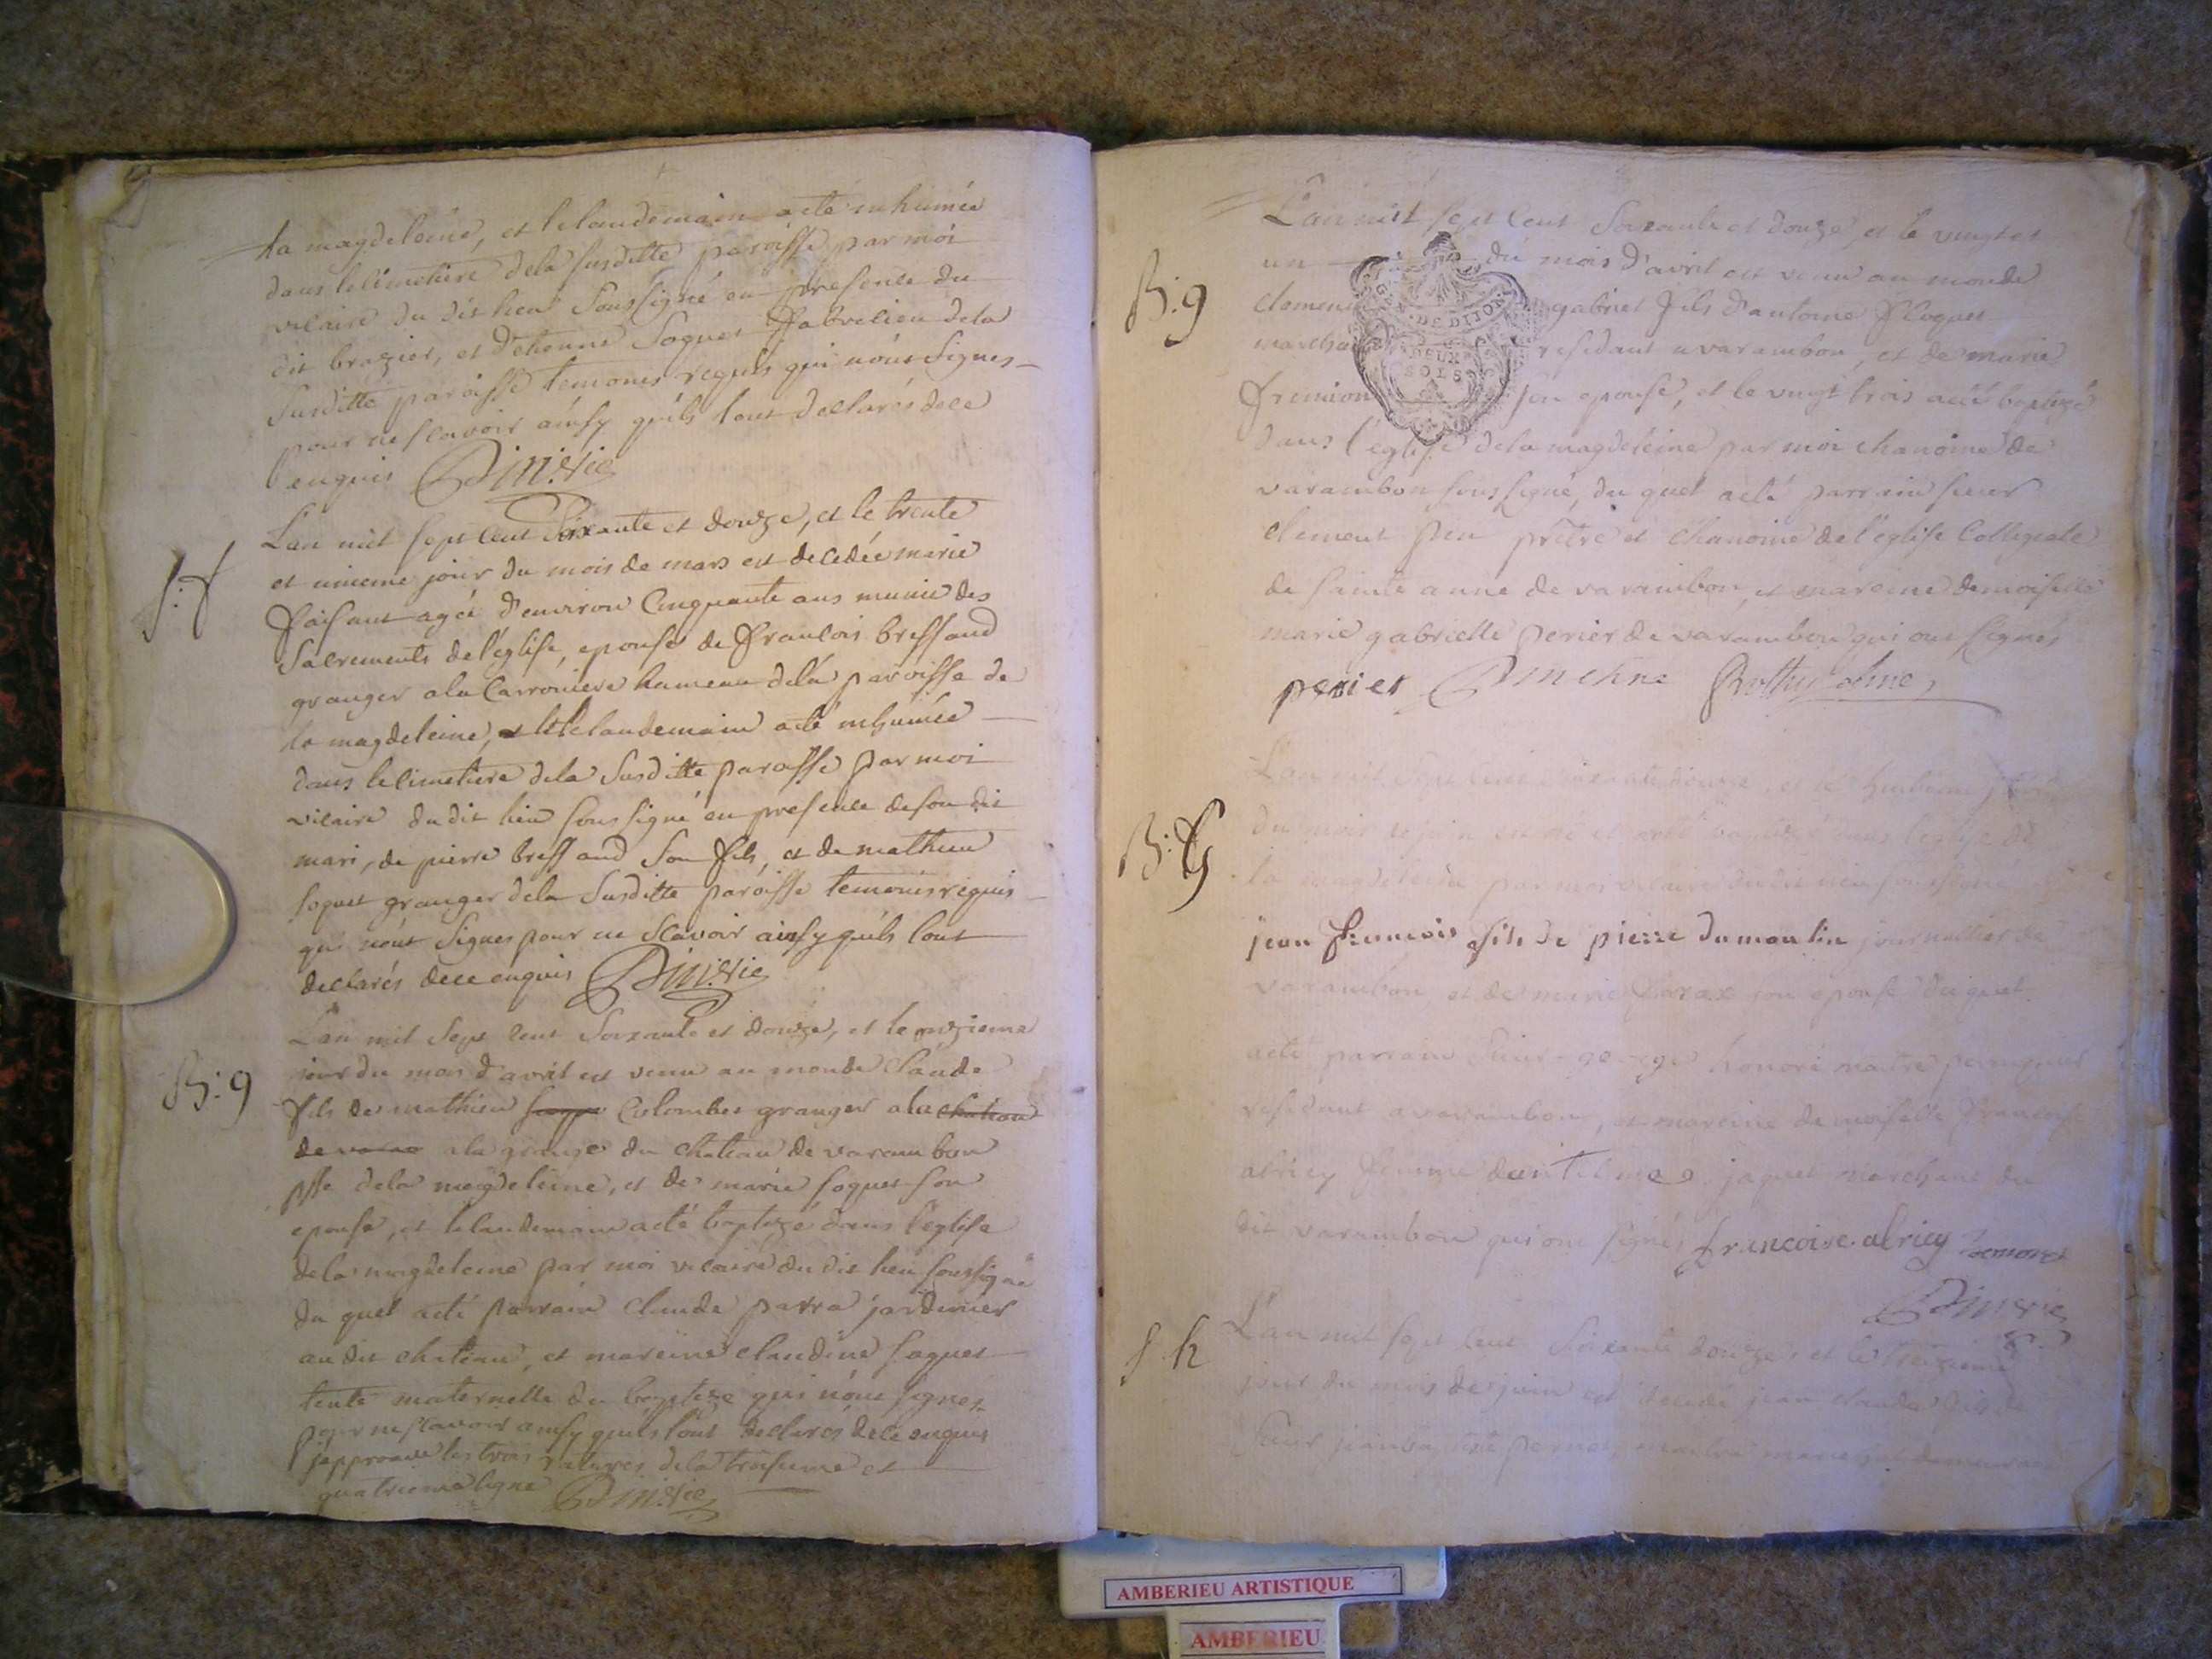 la magdeleine, et le laudemain a eté inhumée
dans le cimetiere dela susditte paroisse par moi
vicaire du dit lieu soussigné en presence du
dit brazier, et d'etienne soquet de la
susditte paroisse temoins requis qui n'ont signes
pour ne scavoir ainsy quils l'ont declarés de ce
enquis
S: f
L'an mil sept cent soixante et douze, et le trente
et unieme jour du mois de mars est decedée marie
faisant agée d'environ cinquante ans munie des
sacrements de l'église, epouse de francois bressand
granger a la Carroniere hameau dela paroisse de
la magdeleine, et le laudemain a eté inhumée
dans le cimetiere dela susditte paroisse par moi
vicaire du dit lieu soussigné en presence de son dit
mari, de pierre bressand son fils, et de mathieu
soquet granger dela susditte paroisse temoins requis
qui n'ont signes pour ne scavoir ainsy quils l'ont
declarés de ce enquis
B: 9
L'an mil sept cent soixante et douze, et le onzieme
jour du mois d'avril est venu au monde claude
fils de mathieu Colombet granger a la chateau
de a la grange du chateau de varambon
psse dela magdeleine, et de marie soquet son
epouse, et le laudemain a eté baptizé dans l'église
dela magdeleine par moi vicaire du dit lieu soussigné
du quel a eté parrain claude parra jardinier
au dit chateau, et mareine claudine soquet
tente maternelle du baptizé qui n'ont signes
pour ne scavoir ainsy quils l'ont declarés de ce enquis
j'approuve les trois ratures dela troisieme et
quatrieme ligne
B: 9
L'an mil sept cent soixante et douze, et le vingt et
un du mois d'avril est venu au monde
clement gabriel fils d'antoine floquet
marchand residant a varambon, et de marie
fremion son epouse, et le vingt trois a eté baptizé
dans l'eglise dela magdeleine par moi chanoine de
varambon soussigné, du quel a eté parrain sieur
clement prétre et chanoine de l'église Collegiale
de sainte anne de varambon, et mareine demoiselle
marie gabrielle perier de varambon qui ont signés
perier
GEN. DE DIJON
DEUX
SOLS
B: G
L'an mil sept cent soixante douze, et le huitieme jour
du mois de juin est né et a eté baptizé dans l'eglise de
la magdeleine par moi vicaire du dit lieu soussigné
jean francois fils de pierre dumoulin journallier de
varambon, et de marie son epouse du quel
a eté parrain sieur george honoré maitre peruquier
residant a varambon, et mareine demoiselle francoise
alricy femme jaquet marchand du
dit varambon qui ont signés francoise alricy
S. h
L'an mil sept cent soixante douze, et le treizieme
jour du mois de juin est decedé jean claude fils de
sieur
AMBERIEU ARTISTIQUE
AMBERIEU